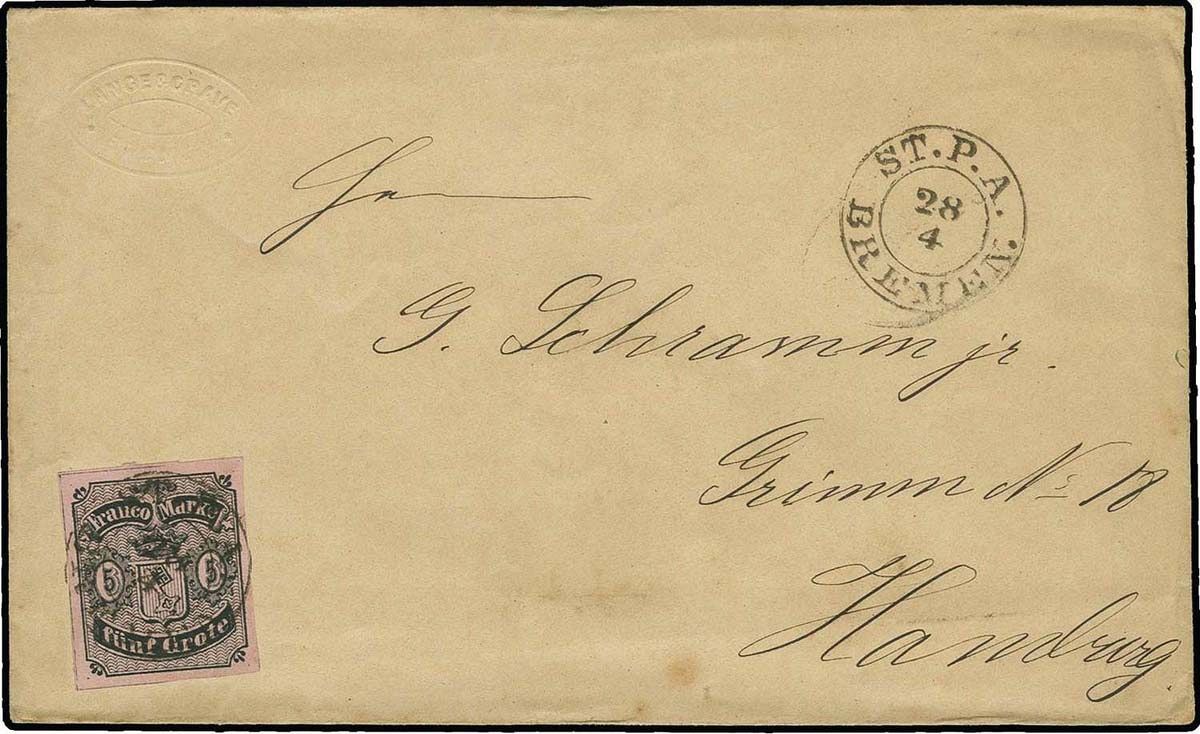 ST. P. A.
28
4
BREMEN.
Herrn
G. Schramm jr.
Grimm No 18
Hamburg
Franco Marke
5 5
fünf Grote